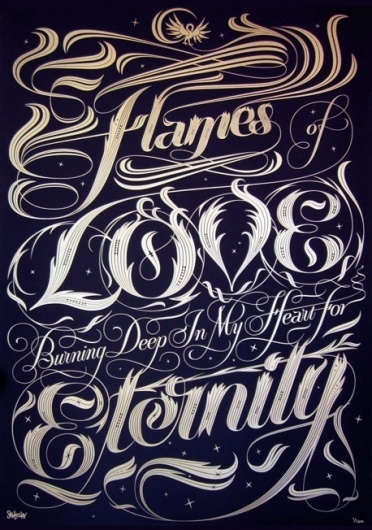 Flames of
LOVE
Burning Deep In My Heart for
Eternity